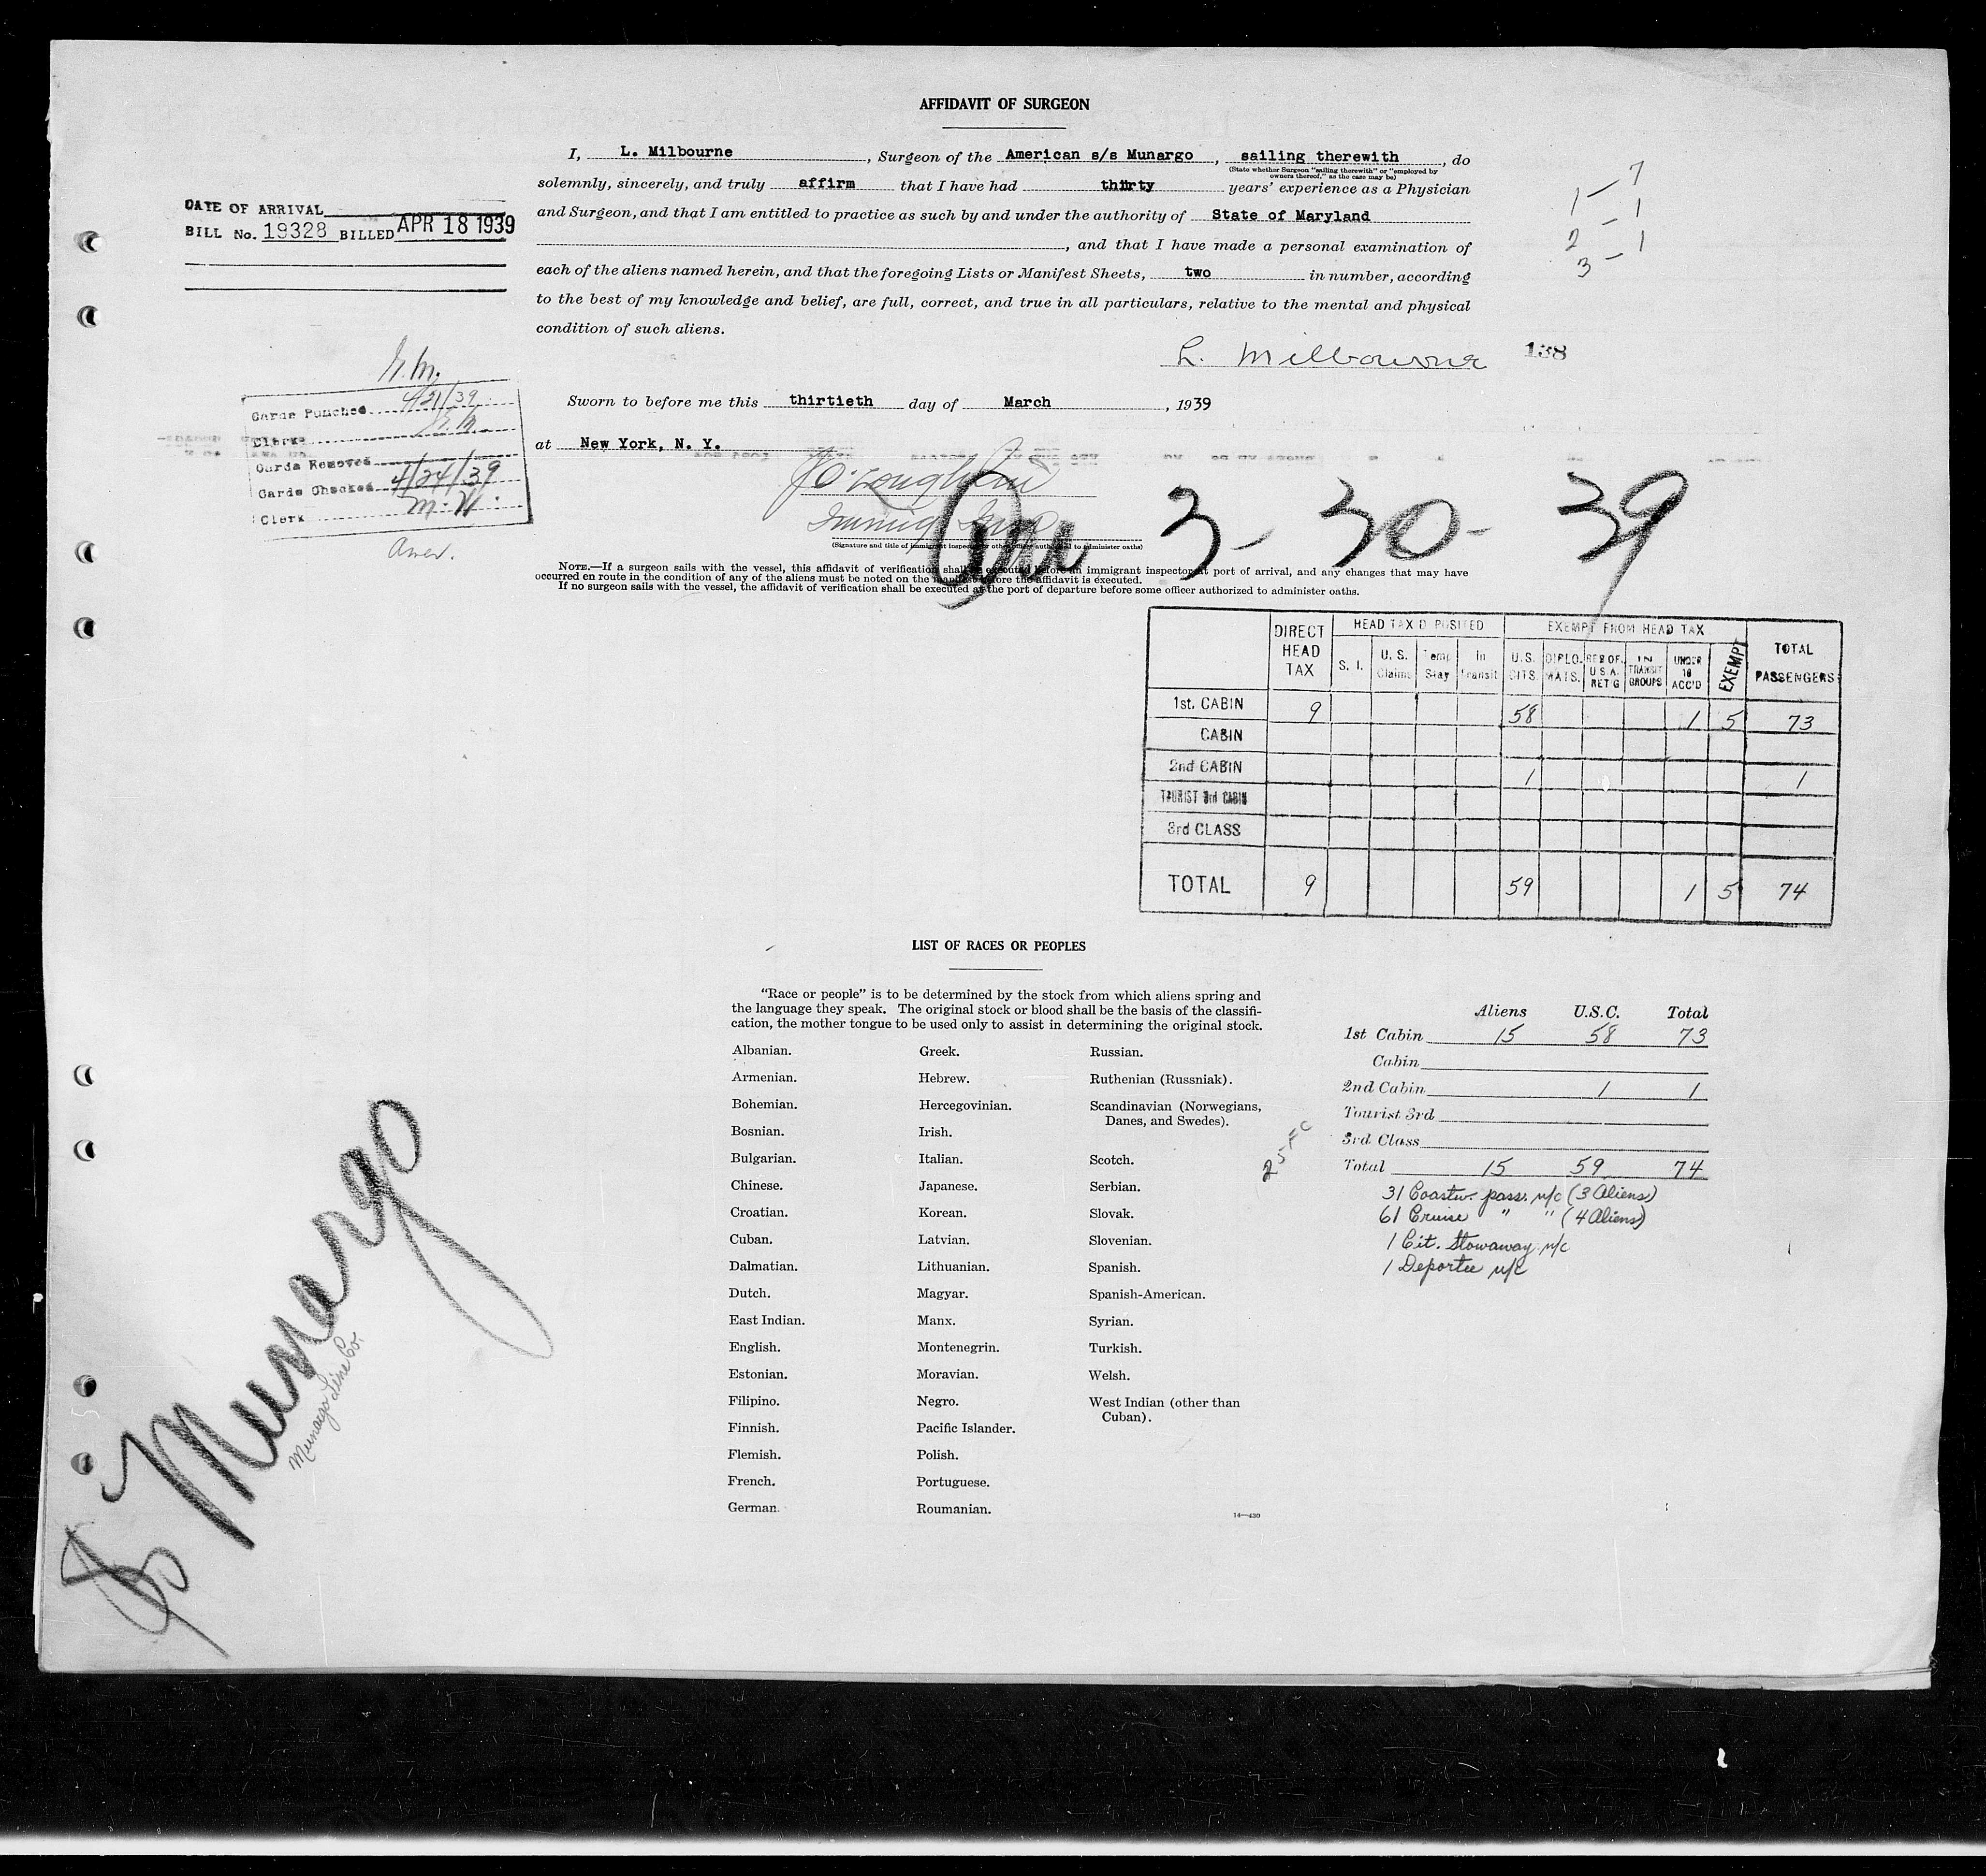 AFFIDAVIT OF SURGEON
I, L. Milbourne, Surgeon of the American s/s Munargo, sailing therewith, do
(State whether Surgeon "sailing therewith" or "employed by
owners thereof," as the case may be)
solemnly, sincerely, and truly affirm that I have had thirty years' experience as a Physician
and Surgeon, and that I am entitled to practice as such by and under the authority of State of Maryland
, and that I have made a personal examination of
each of the aliens named herein, and that the foregoing Lists or Manifest Sheets, two in number, according
to the best of my knowledge and belief, are full, correct, and true in all particulars, relative to the mental and physical
condition of such aliens.
L. Milbourne
138
7
1 – 1
2 – 1
3 –
DATE OF ARRIVAL
BILL No. 19328 BILLED APR 18 1939
Cards Punched 4/21/39
Clerks
Cards Removed
Cards Checked 4/24/39
Clerk M.W.
Sworn to before me this thirtieth day of March, 1939
at New York, N. Y.
J O'Loughlin
Immig Insp
(Signature and title of immigrant inspector or other officer authorized to administer oaths)
Arr 3-30-39
NOTE.—If a surgeon sails with the vessel, this affidavit of verification shall be executed before an immigrant inspector at port of arrival, and any changes that may have
occurred en route in the condition of any of the aliens must be noted on the manifest before the affidavit is executed.
If no surgeon sails with the vessel, the affidavit of verification shall be executed at the port of departure before some officer authorized to administer oaths.
DIRECT HEAD TAX HEAD TAX D POSITED EXEMPT FROM HEAD TAX TOTAL PASSENGERS
S. I. U. S. Claims Temp Stay In Transit U.S. CITS. DIPLO. MATS. RES OF U.S.A. RET'G IN TRANSIT GROUPS UNDER 16 ACC'D EXEMPT
1st. CABIN 9 58 1 5 73
CABIN
2nd CABIN 1 1
TOURIST 3rd CABIN
3rd CLASS
TOTAL 9 59 1 5 74
LIST OF RACES OR PEOPLES
"Race or people" is to be determined by the stock from which aliens spring and
the language they speak. The original stock or blood shall be the basis of the classifi-
cation, the mother tongue to be used only to assist in determining the original stock.
Albanian.
Armenian.
Bohemian.
Bosnian.
Bulgarian.
Chinese.
Croatian.
Cuban.
Dalmatian.
Dutch.
East Indian.
English.
Estonian.
Filipino.
Finnish.
Flemish.
French.
German.
Greek.
Hebrew.
Hercegovinian.
Irish.
Italian.
Japanese.
Korean.
Latvian.
Lithuanian.
Magyar.
Manx.
Montenegrin.
Moravian.
Negro.
Pacific Islander.
Polish.
Portuguese.
Roumanian.
Russian.
Ruthenian (Russniak).
Scandinavian (Norwegians,
Danes, and Swedes).
Scotch.
Serbian.
Slovak.
Slovenian.
Spanish.
Spanish-American.
Syrian.
Turkish.
Welsh.
West Indian (other than
Cuban).
14—430
Aliens U.S.C. Total
1st Cabin 15 58 73
Cabin
2nd Cabin 1 1
Tourist 3rd
3rd Class
Total 15 59 74
31 Coastw. pass. n/c (3 Aliens)
61 Cruise " " (4 Aliens)
1 Cit. Stowaway n/c
1 Deportee n/c
Munargo
Munargo Line Co.